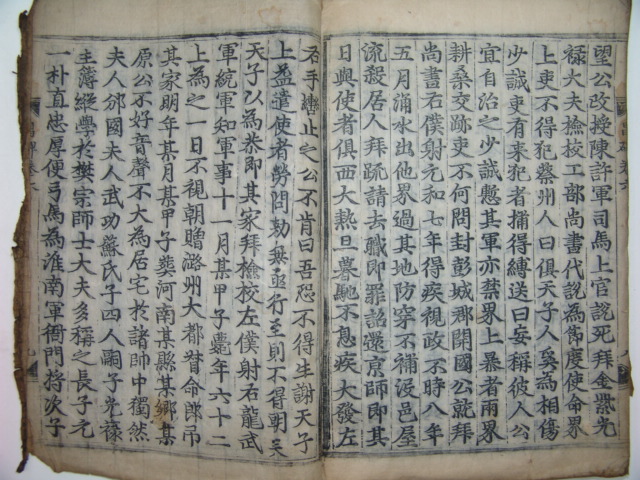 望公改授陳許軍司馬上官說死拜金紫光
祿大夫檢校工部尚書代說為節度使命界
上吏不得犯蔡州人曰俱天子人奚為相傷
少誠吏有來犯者捕得縛送曰妄稱彼人公
宜自治之少誠慙其軍亦禁界上暴者兩界
耕桑交跡吏不何問封彭城郡開國公就拜
尚書右僕射元和七年得疾視政不時八年
五月涌水出他界過其地防穿不補沒邑屋
流殺居人拜疏請去職即罪詔還京師即其
日與使者俱西大熱旦暮馳不息疾大發左
右手轡止之公不肯曰吾恐不得生謝天子
上益遣使者勞問勑無亟行至則不得朝矣
天子以為恭即其家拜檢校左僕射右龍武
軍統軍知軍事十一月某甲子薨年六十二
上為之一日不視朝贈潞州大都督命郎吊
其家明年某月某甲子葬河南某縣某鄉某
原公不好音聲不大為居宅於諸帥中獨然
夫人邠國夫人武功蘇氏子四人嗣子光祿
主簿縱學於樊宗師士大夫多稱之長子元
一朴直忠厚便弓馬為淮南軍衙門將次子